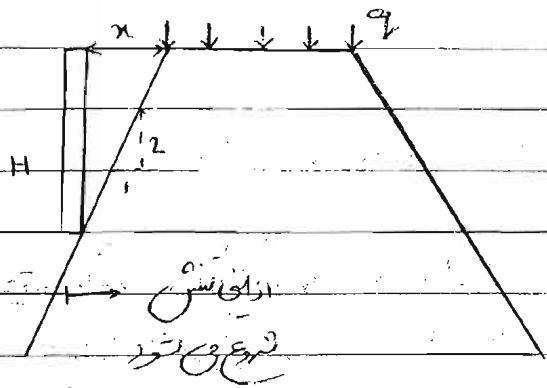 x
q
2
H
1
از این تنش
شروع می شود